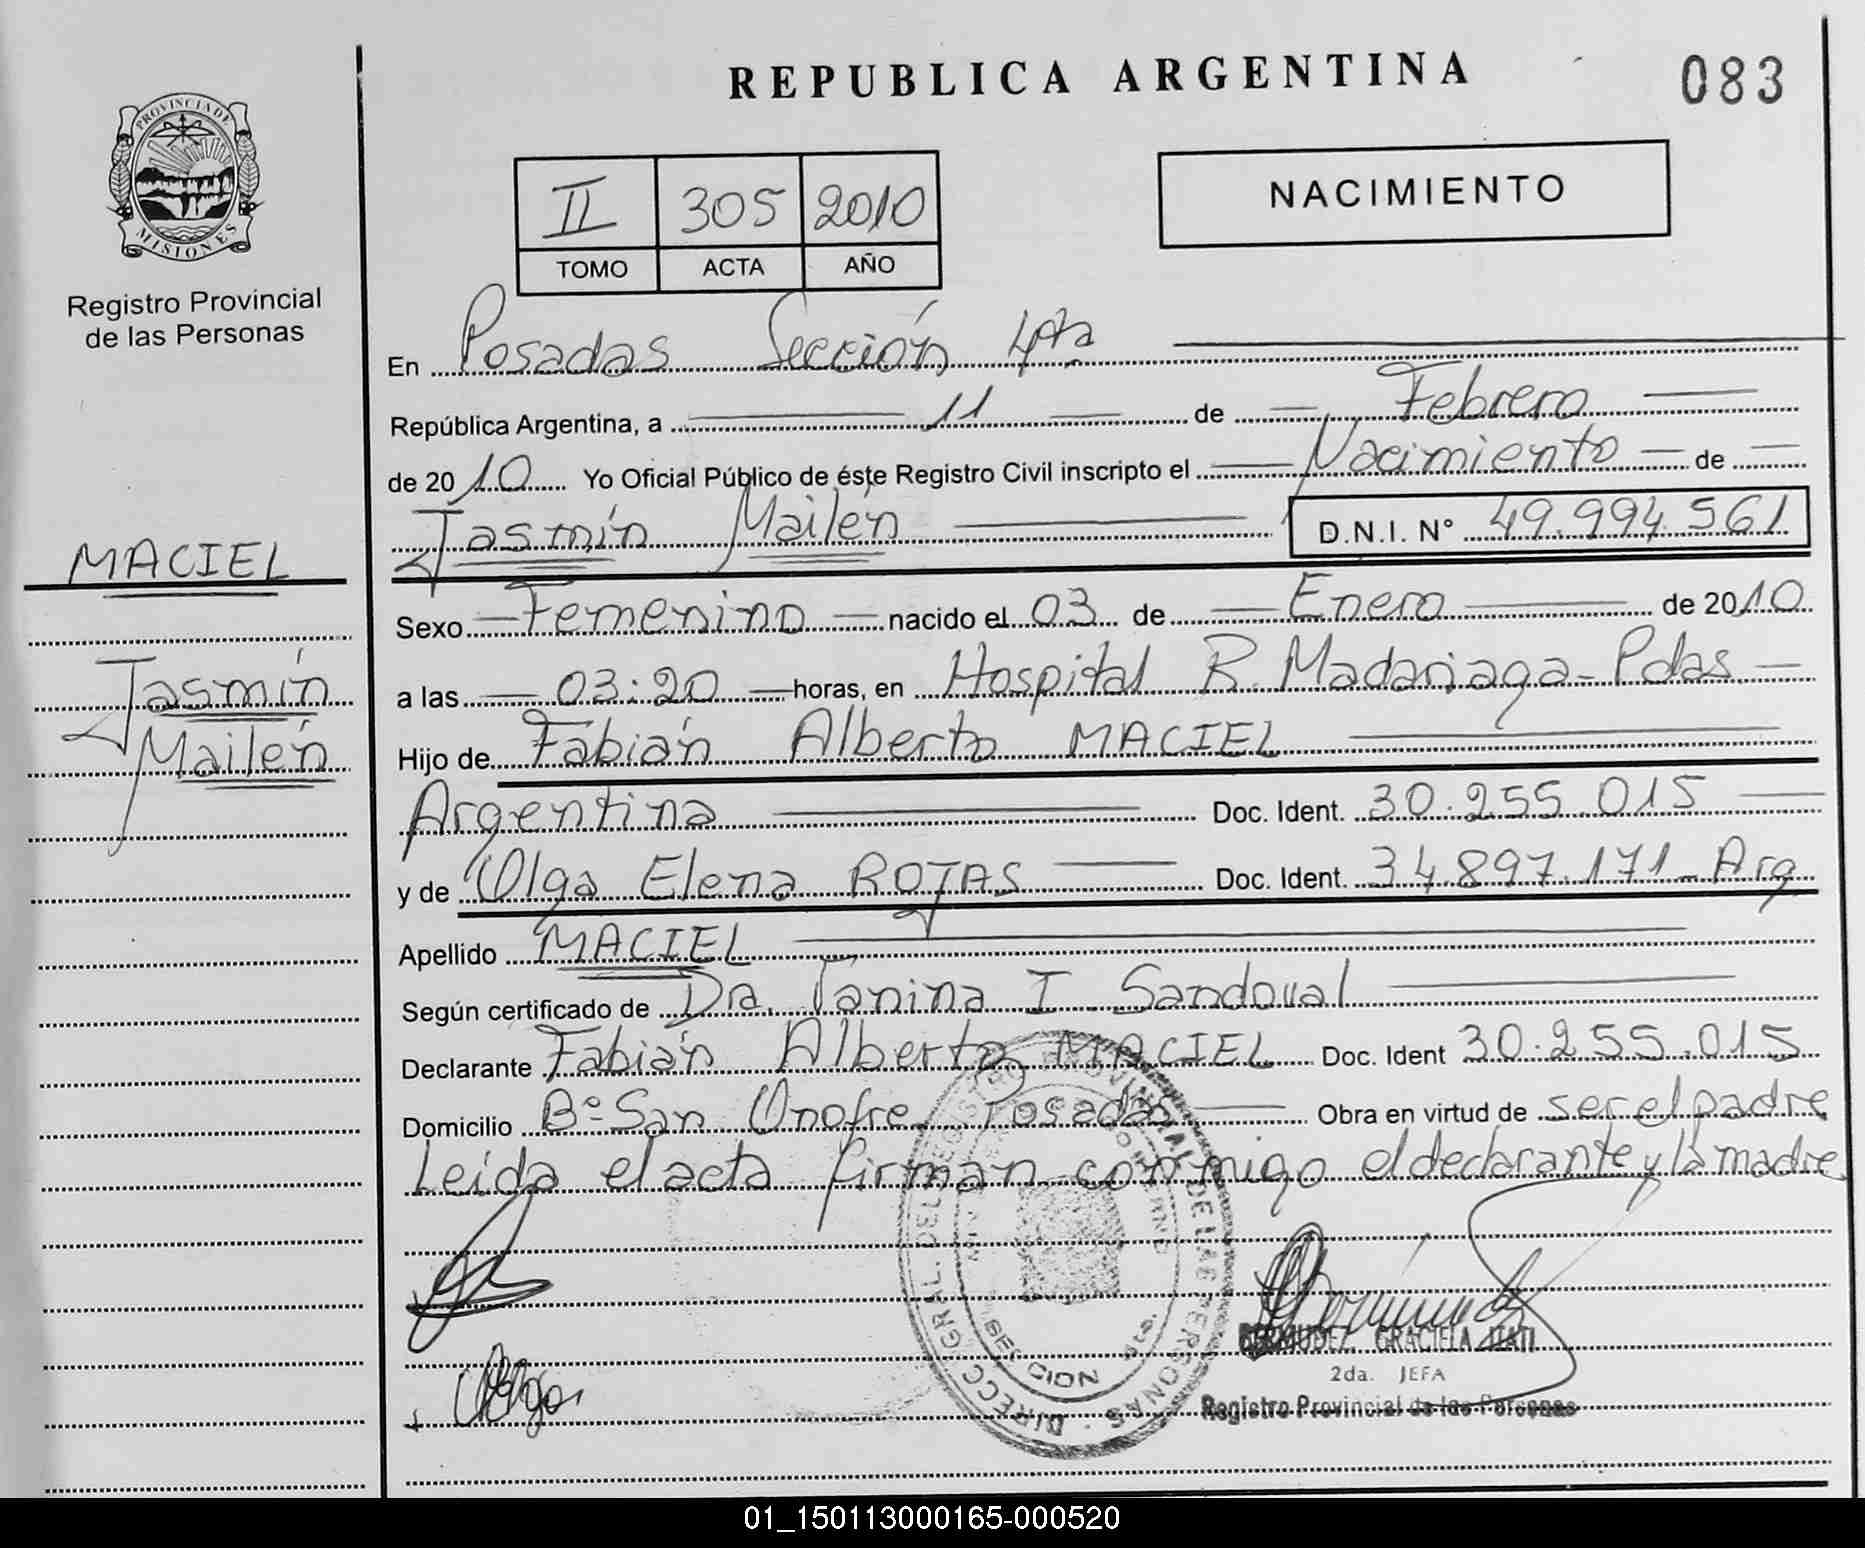 REPUBLICA ARGENTINA
083
PROVINCIA DE
MISIONES
Registro Provincial
de las Personas
II 305 2010
TOMO ACTA AÑO
NACIMIENTO
En Posadas Sección 4ta
República Argentina, a 11 de Febrero
de 2010 Yo Oficial Público de éste Registro Civil inscripto el Nacimiento de
Jasmín Mailén D.N.I. Nº 49.994.561
MACIEL
Jasmín
Mailén
Sexo Femenino nacido el 03 de Enero de 2010
a las 03:20 horas, en Hospital R. Madariaga - Pdas
Hijo de Fabián Alberto MACIEL
Argentina Doc. Ident. 30.255.015
y de Olga Elena ROJAS Doc. Ident. 34.897.171 Arg
Apellido MACIEL
Según certificado de Dra. Yanina I. Sandoval
Declarante Fabián Alberto MACIEL Doc. Ident 30.255.015
Domicilio Bº San Onofre Posadas Obra en virtud de ser el padre
Leída el acta firman conmigo el declarante y la madre
DIRECC. GRAL. DEL REGISTRO PROVINCIAL DE LAS PERSONAS
BERMUDEZ GRACIELA ITATI
2da. JEFA
Registro Provincial de las Personas
Olga
01_150113000165-000520